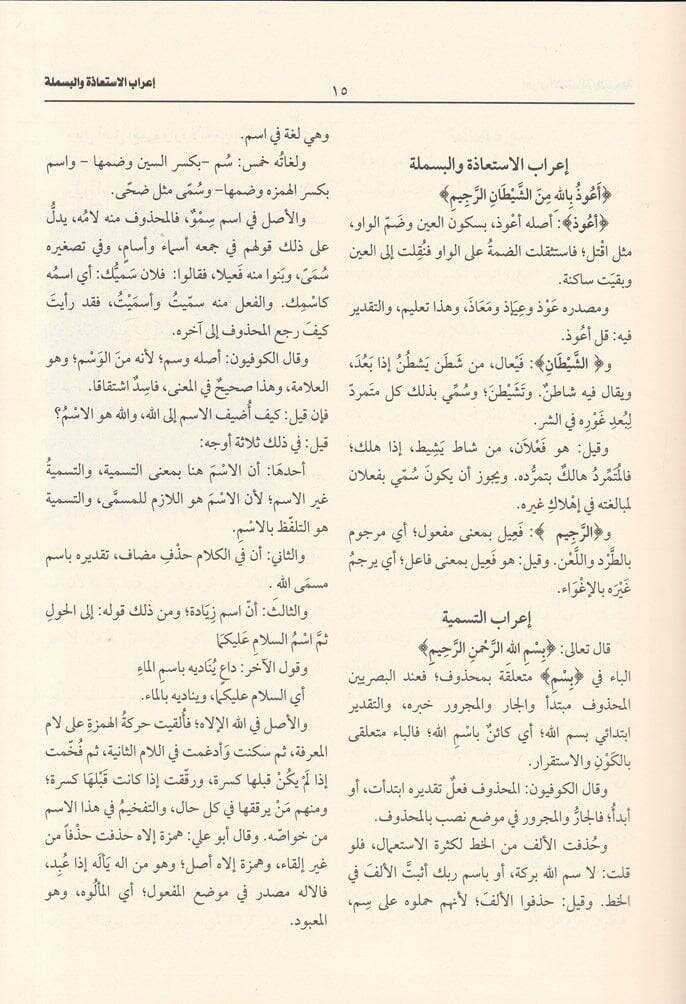 إعراب الاستعاذة والبسملة
١٥
إعراب الاستعاذة والبسملة
﴿أَعُوذُ بِالله مِنَ الشَّيْطَانِ الرَّجِيمِ﴾
﴿أعُوذ﴾: أصله أعْوذ، بسكون العين وضَمّ الواو،
مثل اقْتل؛ فاستثقلت الضمةُ على الواو فنُقِلت إلى العين
وبقيَت ساكنة.
ومصدره عَوْذ وعِيَاذ ومَعَاذَ، وهذا تعليم، والتقدير
فيه: قل أعُوذ.
و﴿ الشَّيْطَانِ﴾: فَيْعال، من شَطَن يَشطُنُ إذا بَعُدَ،
ويقال فيه شاطنٌ. وتَشَيْطنَ؛ وسُمِّي بذلك كل متَمردّ
لِبُعدِ غَوْرِه في الشر.
وقيل: هو فَعْلَان، من شاط يَشِيط، إذا هلك؛
فالمُتَمِّردُ هالكٌ بتمرُّده. ويجوز أن يكونَ سُمّي بفعلان
لمبالغته في إهْلاكِ غيره.
و﴿الرَّجِيم ﴾: فَعِيل بمعنى مفعول؛ أي مرجوم
بالطَّرْد واللَّعْن. وقيل: هو فَعِيل بمعنى فاعل؛ أي يرجمُ
غَيْرَه بالإغْوَاء.
إعراب التسمية
قال تعالى: ﴿بِسْمِ الله الرَّحْمنِ الرَّحِيمِ﴾
الباء في ﴿بِسْمِ﴾ متعلقة بمحذوف؛ فعند البصريين
المحذوف مبتدأ والجار والمجرور خبره، والتقدير
ابتدائي بسم الله؛ أي كائنٌ باسْمِ الله؛ فالباء متعلقى
بالكَوْنِ والاستقرار.
وقال الكوفيون: المحذوف فعلٌ تقديره ابتدأت، أو
أبدأُ؛ فالجارُّ والمجرور في موضع نصب بالمحذوف.
وحُذفت الألف من الخط لكثرة الاستعمال، فلو
قلت: لا سم الله بركة، أو باسم ربك أثبتَّ الألفَ في
الخط. وقيل: حذفوا الألفَ؛ لأنهم حملوه على سِم،
وهي لغة في اسم.
ولغاتُه خمس: سُم –بكسر السين وضمها– واسم
بكسر الهمزه وضمها– وسُمّى مثل ضحًى.
والأصل في اسم سِمْوٌ، فالمحذوف منه لامُه، يدلُّ
على ذلك قولهم في جمعه أسماء وأسامٍ، وفي تصغيره
سُمَىّ، وبَنوا منه فَعيلا، فقالوا: فلان سَميُّك: أي اسمُه
كاسْمِك. والفعل منه سمّيتُ وأسمَيْتُ، فقد رأيتَ
كيفَ رجع المحذوف إلى آخره.
وقال الكوفيون: أصله وسم؛ لأنه منَ الوَسْم؛ وهو
العلامة، وهذا صحيحٌ في المعنى، فاسِدٌ اشتقاقا.
فإن قيل: كيف أُضيف الاسم إلى الله، والله هو الاسْمُ؟
قيل: في ذلك ثلاثة أوجه:
أحدهَا: أن الاسْمَ هنا بمعنى التسمية، والتسميةُ
غير الاسم؛ لأن الاسْمَ هو اللازم للمسمَّى، والتسمية
هو التلفّظ بالاسْمِ.
والثاني: أن في الكلام حذْفِ مضاف، تقديره باسم
مسمَى الله .
والثالثَ: أنّ اسم زِيَادة؛ ومن ذلك قوله: إلى الحولِ
ثمَّ اسْمُ السلامِ عَليكمَا
وقول الآخر: داعٍ يُنَاديه باسمِ الماءِ
أي السلام عليكما، ويناديه بالماء.
والأصل في الله الإلاه؛ فأُلقيت حركةُ الهمزةِ على لام
المعرفة، ثم سكنت وَأدغمت في اللام الثانية، ثم فُخّمت
إذا لَمْ يكُنْ قبلها كسرة، ورقّقت إذا كانت قَبْلَهَا كسرة؛
ومنهم مَنْ يرققها في كل حال، والتفخيمُ في هذا الاسم
من خواصّه. وقال أبو علي: همزة إلاه حذفت حذْفاً من
غير إلقاء، وهمزة إلاه أصل؛ وهو من اله يَألَه إذا عُبِد،
فالاله مصدر في موضع المفعول؛ أي المألُوه، وهو
المعبود.